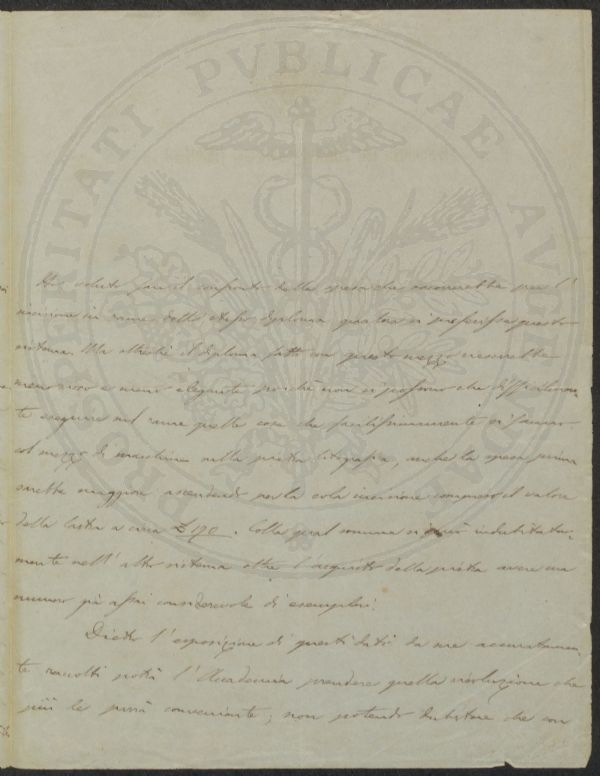 PROSPERITATI PVBLICAE AVGENDAE
Ho voluto fare il confronto della spesa che occorrerebbe per l'
incisione in rame dello stesso diploma, qualora si preferisse questo
sistema. Ma oltreché il diploma fatto con questo mezzo riescirebbe
meno ricco e meno elegante poiché non si possono che difficilmen-
te eseguire sul rame quelle cose che facilissimamente si fanno
col mezzo di macchine nella pietra litografica, anche la spesa prima
sarebbe maggiore ascendendo per la sola incisione compreso il valore
della lastra a circa £ 190. Colla qual somma si può indubitata-
mente nell'altro sistema oltre l'acquisto della pietra avere un
numero già assai considerevole di esemplari.
Dietro l'esposizione di questi dati da me accuratamen-
te raccolti potrà l'Accademia prendere quella risoluzione che
più le parrà conveniente; non potendo dubitare che con